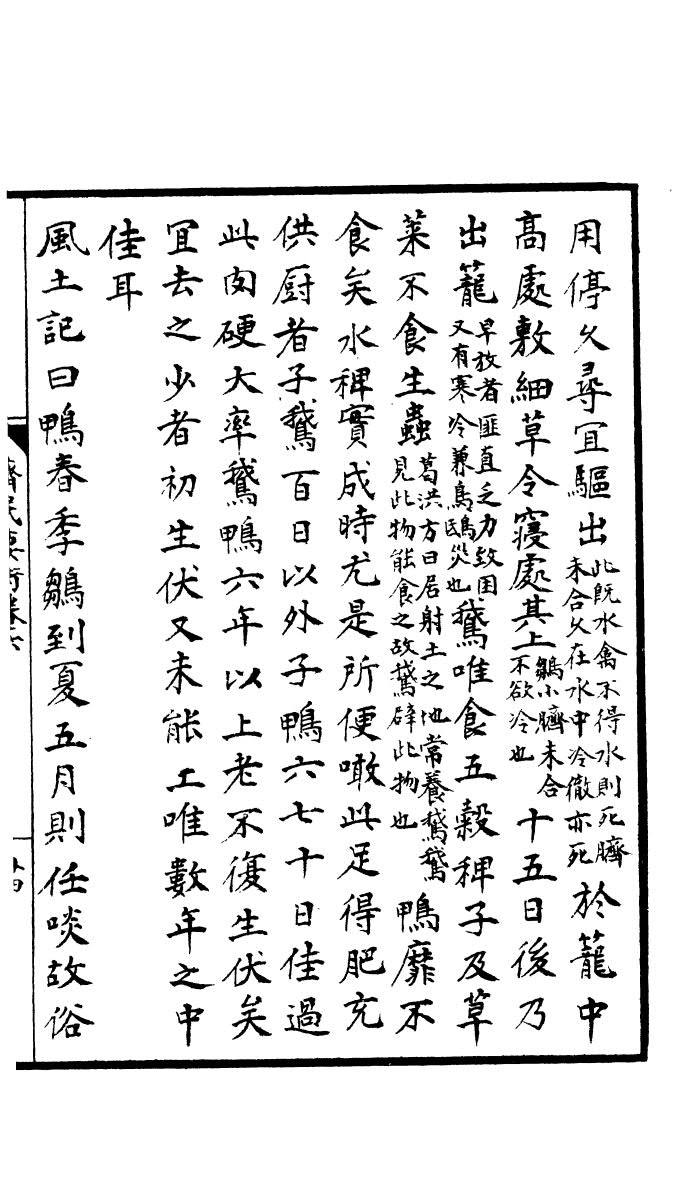 用停久尋冝驅出此既水禽不得水則死臍未合久在水中冷徹亦死於籠中
高處敷細草令寢處其上雛小臍未合不欲冷也十五日後乃
出籠早放者匪直乏力致困又有寒冷兼烏鴟災也鵞唯食五穀稗子及草
菜不食生蟲葛洪方曰居射土之地常養鵞鵞見此物能食之故鵞辟此物也鴨靡不
食矣水稗實成時尤是所便噉此足得肥充
供厨者子鵞百日以外子鴨六七十日佳過
此肉硬大率鵞鴨六年以上老不復生伏矣
冝去之少者初生伏又未能工唯數年之中
佳耳
風土記曰鴨春季雛到夏五月則任啖故俗
齊民要術卷六